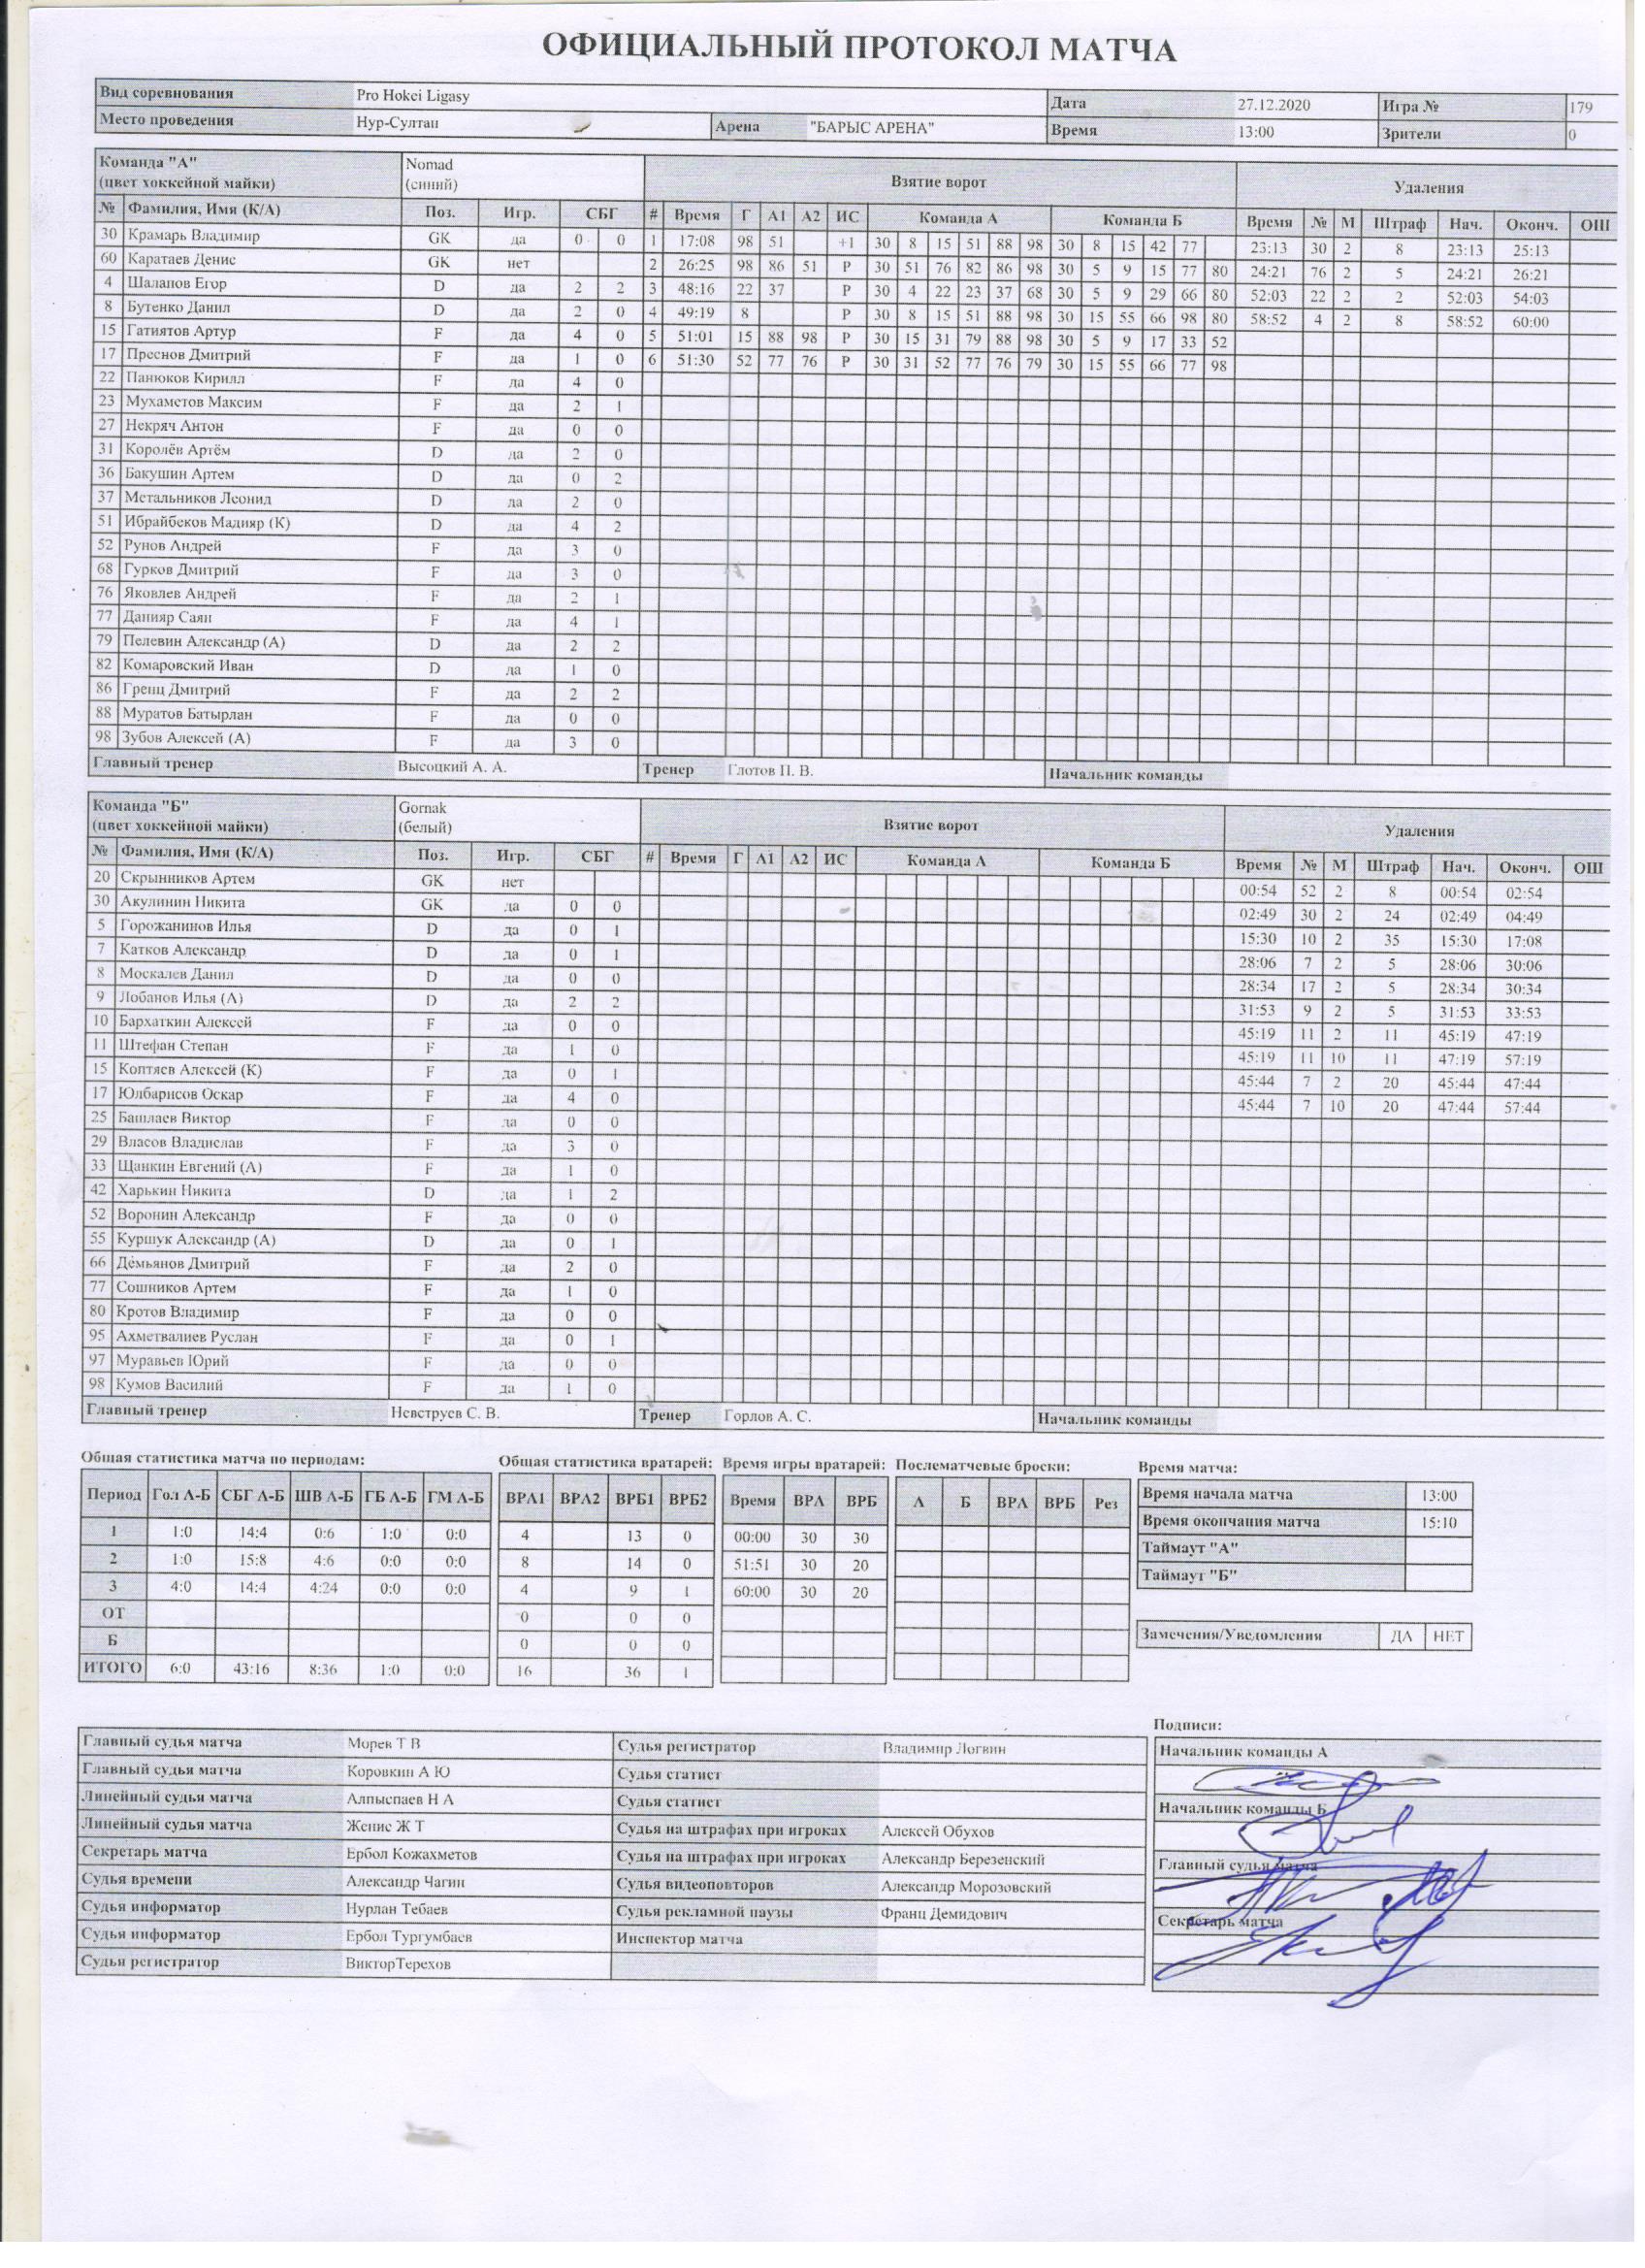 ОФИЦИАЛЬНЫЙ ПРОТОКОЛ МАТЧА
Вид соревнования Pro Hokei Ligasy Дата 27.12.2020 Игра № 179
Место проведения Нур-Султан Арена "БАРЫС АРЕНА" Время 13:00 Зрители 0
Команда "А" Nomad Взятие ворот Удаления
(цвет хоккейной майки) (синий)
№ Фамилия, Имя (К/А) Поз. Игр. СБГ # Время Г А1 А2 ИС Команда А Команда Б Время № М Штраф Нач. Оконч. ОШ
30 Крамарь Владимир GK да 0 0 1 17:08 98 51 +1 30 8 15 51 88 98 30 8 15 42 77 23:13 30 2 8 23:13 25:13
60 Каратаев Денис GK нет 2 26:25 98 86 51 Р 30 51 76 82 86 98 30 5 9 15 77 80 24:21 76 2 5 24:21 26:21
4 Шалапов Егор D да 2 2 3 48:16 22 37 Р 30 4 22 23 37 68 30 5 9 29 66 80 52:03 22 2 2 52:03 54:03
8 Бутенко Данил D да 2 0 4 49:19 8 Р 30 8 15 51 88 98 30 15 55 66 98 80 58:52 4 2 8 58:52 60:00
15 Гатиятов Артур F да 4 0 5 51:01 15 88 98 Р 30 15 31 79 88 98 30 5 9 17 33 52
17 Преснов Дмитрий F да 1 0 6 51:30 52 77 76 Р 30 31 52 77 76 79 30 15 55 66 77 98
22 Панюков Кирилл F да 4 0
23 Мухаметов Максим F да 2 1
27 Некряч Антон F да 0 0
31 Королёв Артём D да 2 0
36 Бакушин Артем D да 0 2
37 Метальников Леонид D да 2 0
51 Ибрайбеков Мадияр (К) D да 4 2
52 Рунов Андрей F да 3 0
68 Гурков Дмитрий F да 3 0
76 Яковлев Андрей F да 2 1
77 Данияр Саян F да 4 1
79 Пелевин Александр (А) D да 2 2
82 Комаровский Иван D да 1 0
86 Гренц Дмитрий F да 2 2
88 Муратов Батырлан F да 0 0
98 Зубов Алексей (А) F да 3 0
Главный тренер Высоцкий А. А. Тренер Глотов П. В. Начальник команды
Команда "Б" Gornak Взятие ворот Удаления
(цвет хоккейной майки) (белый)
№ Фамилия, Имя (К/А) Поз. Игр. СБГ # Время Г А1 А2 ИС Команда А Команда Б Время № М Штраф Нач. Оконч. ОШ
20 Скрынников Артем GK нет 00:54 52 2 8 00:54 02:54
30 Акулинин Никита GK да 0 0 02:49 30 2 24 02:49 04:49
5 Горожанинов Илья D да 0 1 15:30 10 2 35 15:30 17:08
7 Катков Александр D да 0 1 28:06 7 2 5 28:06 30:06
8 Москалев Данил D да 0 0 28:34 17 2 5 28:34 30:34
9 Лобанов Илья (А) D да 2 2 31:53 9 2 5 31:53 33:53
10 Бархаткин Алексей F да 0 0 45:19 11 2 11 45:19 47:19
11 Штефан Степан F да 1 0 45:19 11 10 11 47:19 57:19
15 Коптяев Алексей (К) F да 0 1 45:44 7 2 20 45:44 47:44
17 Юлбарисов Оскар F да 4 0 45:44 7 10 20 47:44 57:44
25 Башлаев Виктор F да 0 0
29 Власов Владислав F да 3 0
33 Щанкин Евгений (А) F да 1 0
42 Харькин Никита D да 1 2
52 Воронин Александр F да 0 0
55 Куршук Александр (А) D да 0 1
66 Демьянов Дмитрий F да 2 0
77 Сошников Артем F да 1 0
80 Кротов Владимир F да 0 0
95 Ахметвалиев Руслан F да 0 1
97 Муравьев Юрий F да 0 0
98 Кумов Василий F да 1 0
Главный тренер Невструев С. В. Тренер Горлов А. С. Начальник команды
Общая статистика матча по периодам: Общая статистика вратарей: Время игры вратарей: Послематчевые броски: Время матча:
Период Гол А-Б СБГ А-Б ШВ А-Б ГБ А-Б ГМ А-Б ВРА1 ВРА2 ВРБ1 ВРБ2 Время ВРА ВРБ А Б ВРА ВРБ Рез Время начала матча 13:00
1 1:0 14:4 0:6 1:0 0:0 4 13 0 00:00 30 30 Время окончания матча 15:10
2 1:0 15:8 4:6 0:0 0:0 8 14 0 51:51 30 20 Таймаут "А"
3 4:0 14:4 4:24 0:0 0:0 4 9 1 60:00 30 20 Таймаут "Б"
ОТ 0 0 0
Б 0 0 0 Замечения/Уведомления ДА НЕТ
ИТОГО 6:0 43:16 8:36 1:0 0:0 16 36 1
Подписи:
Главный судья матча Морев Т В Судья регистратор Владимир Логвин Начальник команды А
Главный судья матча Коровкин А Ю Судья статист
Линейный судья матча Алпыспаев Н А Судья статист Начальник команды Б
Линейный судья матча Женис Ж Т Судья на штрафах при игроках Алексей Обухов
Секретарь матча Ербол Кожахметов Судья на штрафах при игроках Александр Березенский Главный судья матча
Судья времени Александр Чагин Судья видеоповторов Александр Морозовский
Судья информатор Нурлан Тебаев Судья рекламной паузы Франц Демидович Секретарь матча
Судья информатор Ербол Тургумбаев Инспектор матча
Судья регистратор ВикторТерехов